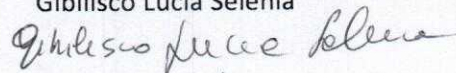 Gibilisco Lucia Selenia
Gibilisco Lucia Selenia